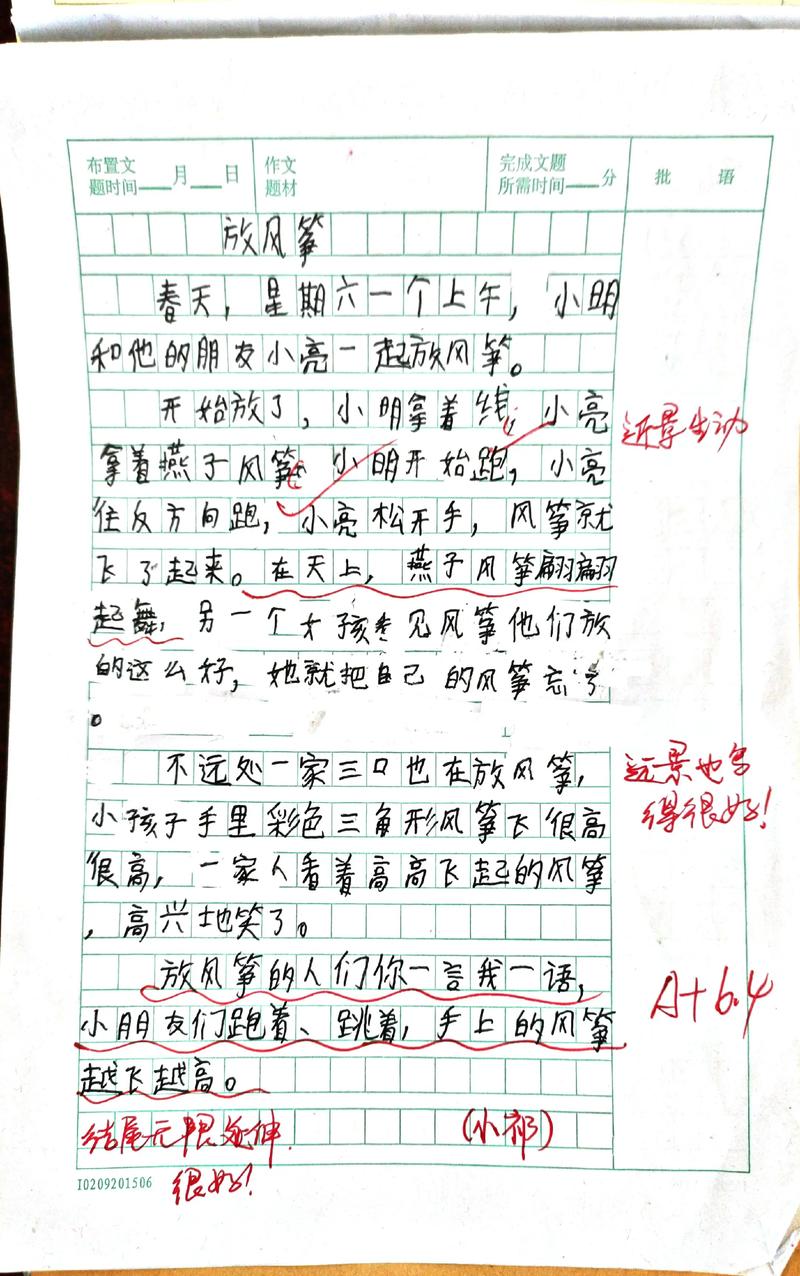 布置文
题时间 月 日
作文
题材
完成文题
所需时间 分
批 语
放风筝
春天,星期六一个上午,小明
和他的朋友小亮一起放风筝。
开始放了,小明拿着线,小亮
近景生动
拿着燕子风筝 小明开始跑,小亮
往反方向跑,小亮松开手,风筝就
飞了起来。在天上,燕子风筝翩翩
起舞,另一个女孩看见风筝他们放
的这么好,她就把自己的风筝忘了
。
不远处一家三口也在放风筝,
远景也写
得很好!
小孩子手里彩色三角形风筝飞很高
很高,一家人看着高高飞起的风筝
,高兴地笑了。
放风筝的人们你一言我一语,
A+ 6.4
小朋友们跑着、跳着,手上的风筝
越飞越高。
结尾无限延伸.
很好!
(小祁)
I0209201506